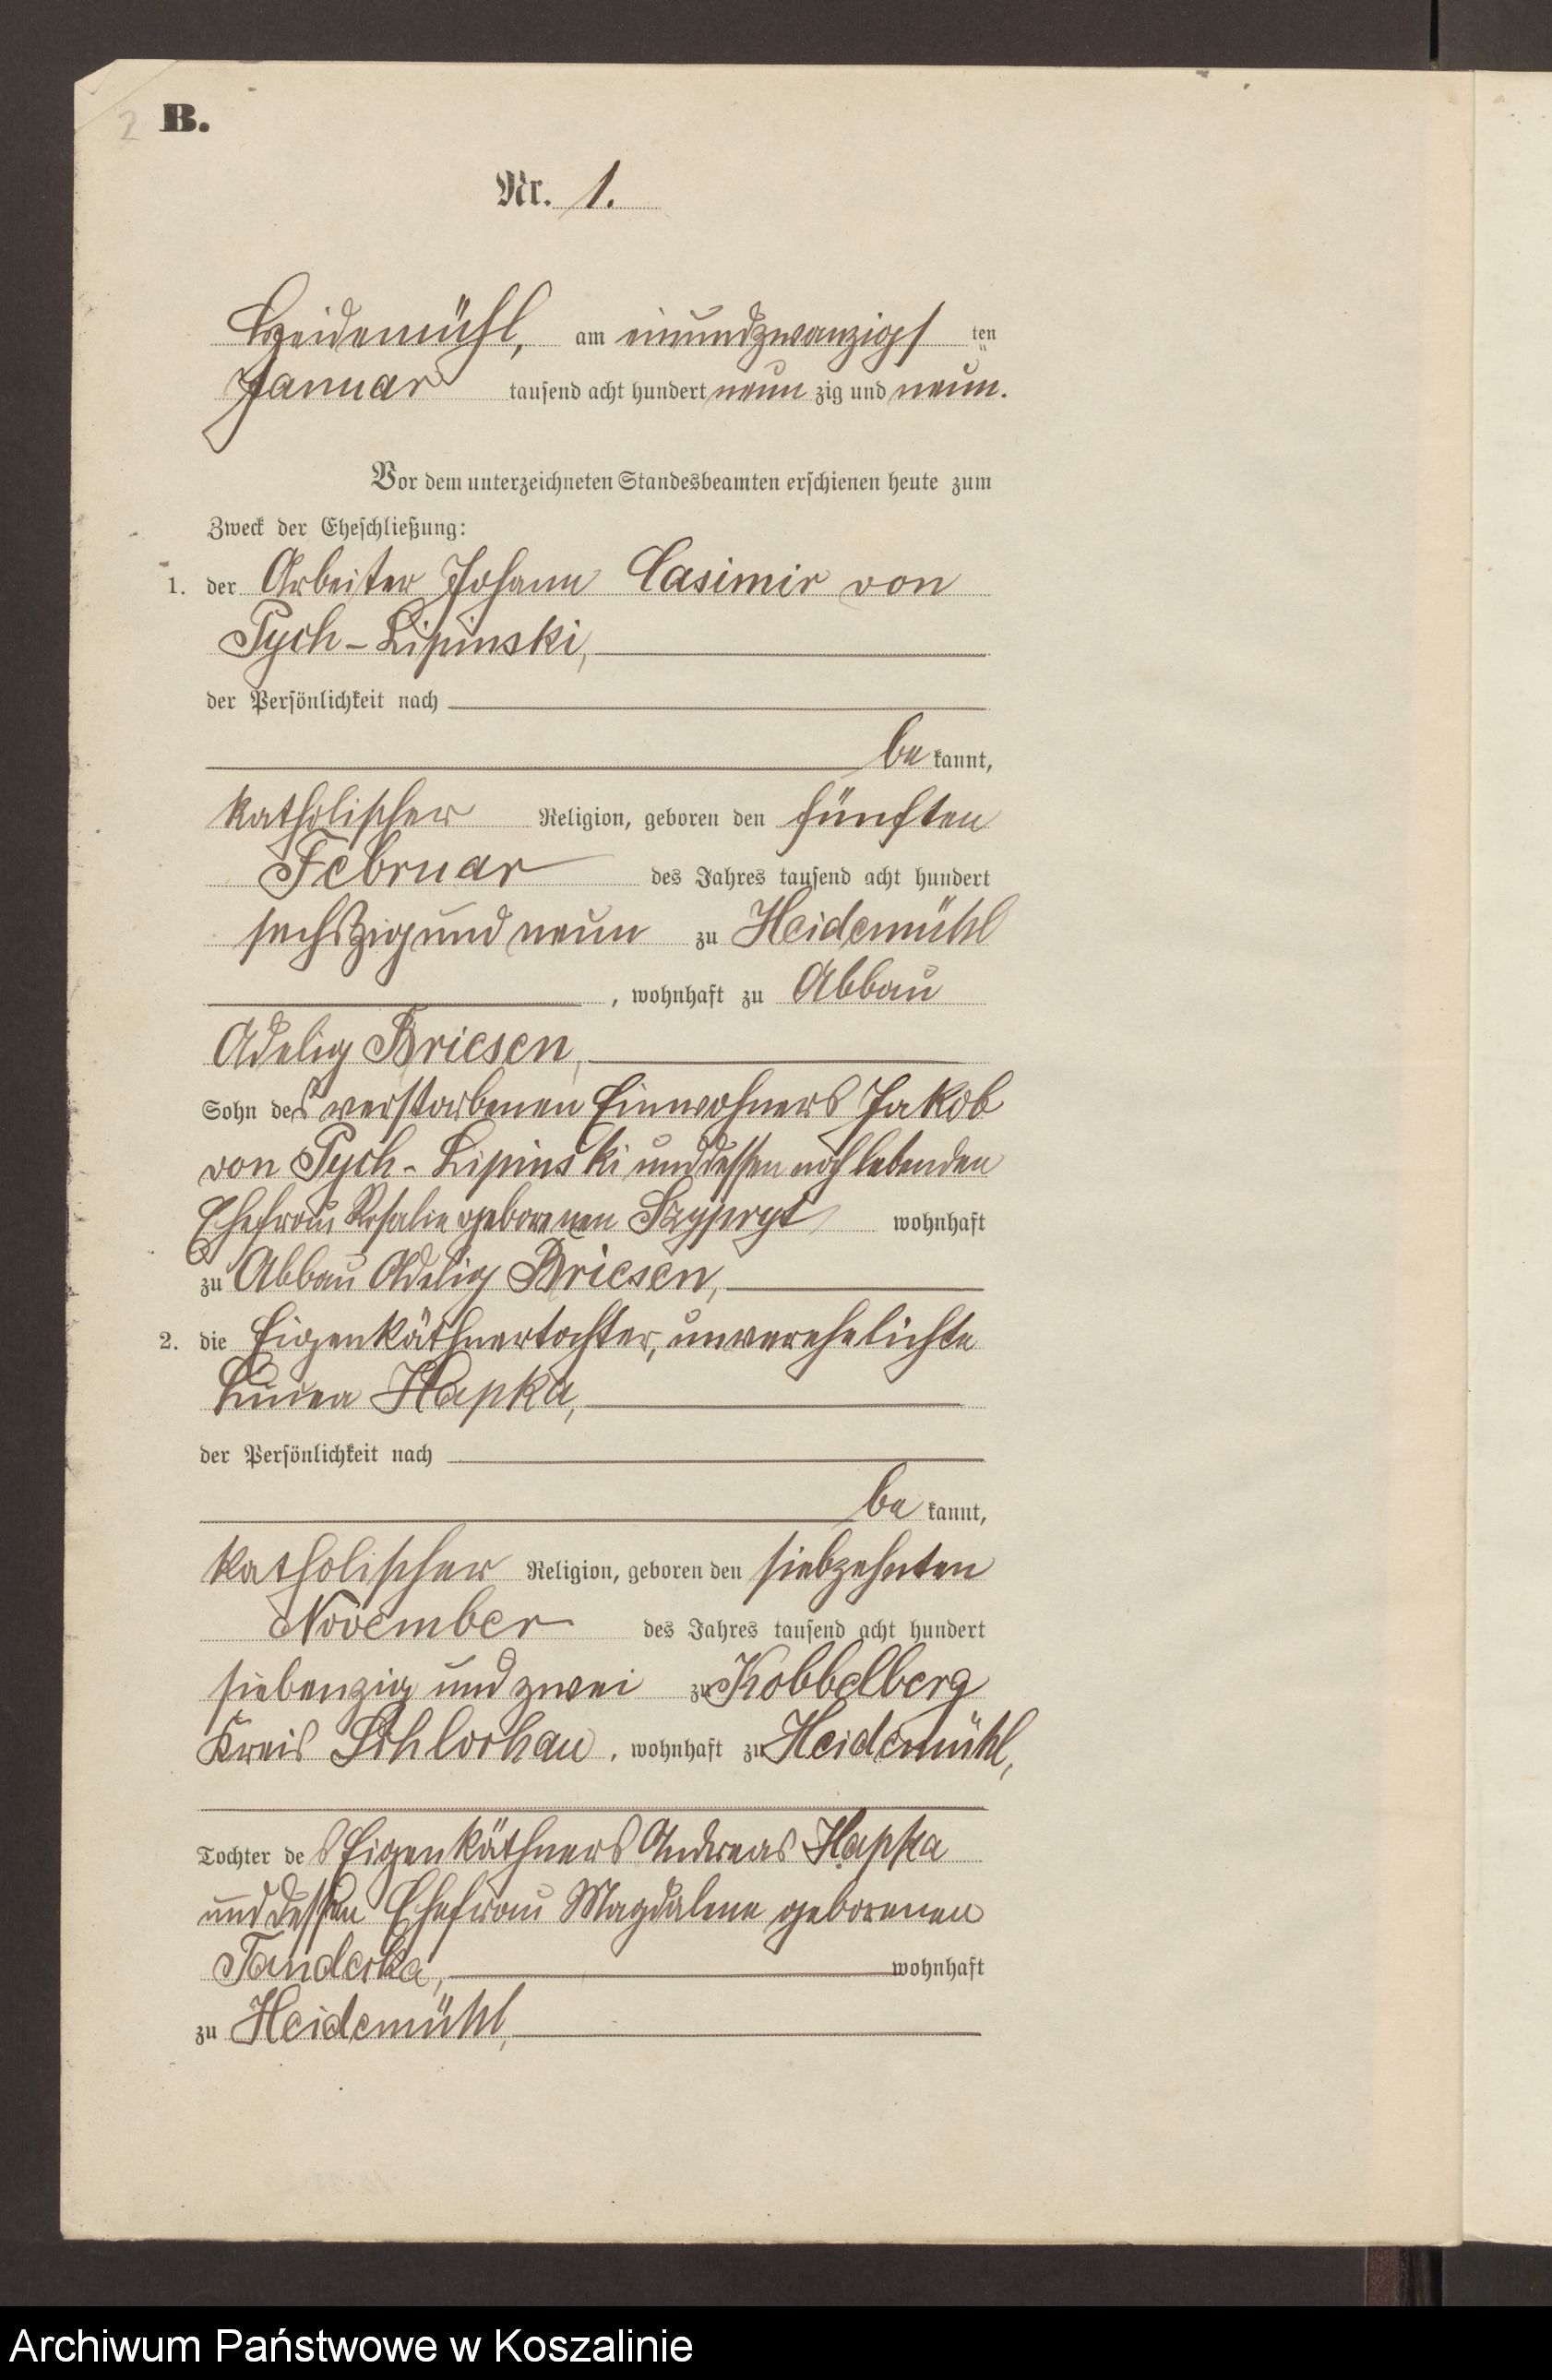 2 B.
Nr. 1.
Heidemühl, am einundzwanzigsten
Januar tausend acht hundert neunzig und neun.
Vor dem unterzeichneten Standesbeamten erschienen heute zum
Zweck der Eheschließung:
1. der Arbeiter Johann Casimir von
Pych-Lipinski,
der Persönlichkeit nach
bekannt,
katholischer Religion, geboren den fünften
Februar des Jahres tausend acht hundert
sechszig und neun zu Heidemühl
, wohnhaft zu Abbau
Adelig Briesen,
Sohn des verstorbenen Einwohners Jakob
von Pych-Lipinski und dessen noch lebenden
Ehefrau Rosalie geborenen wohnhaft
zu Abbau Adelig Briesen,
2. die Eigenkäthnertochter, unverehelichte
Hapka,
der Persönlichkeit nach
bekannt,
katholischer Religion, geboren den siebzehnten
November des Jahres tausend acht hundert
siebenzig und zwei zu Kobbelberg
Kreis Schlochau, wohnhaft zu Heidemühl,
Tochter des Eigenkäthners Andreas Hapka
und dessen Ehefrau Magdalene geborenen
wohnhaft
zu Heidemühl,
Archiwum Państwowe w Koszalinie